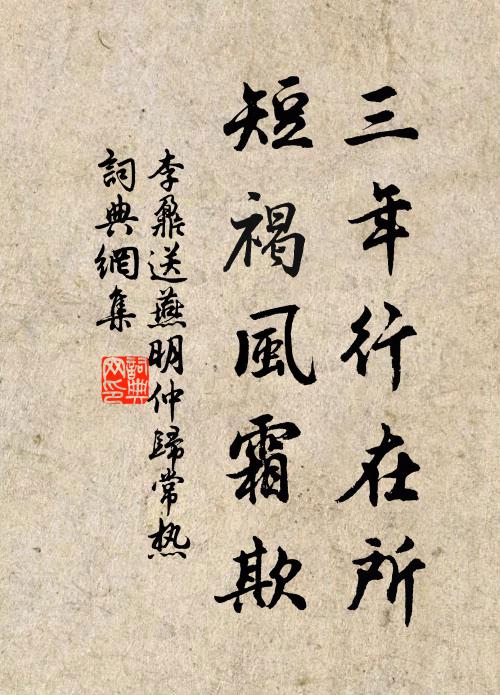 三年行在所
短褐風霜欺
李鼐送燕明仲歸常热
詞典網集
詞典网印